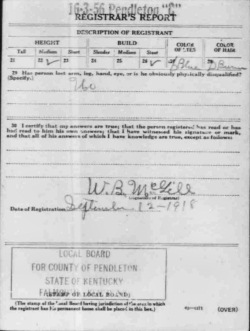 16-3-56 Pendleton "C"
REGISTRAR'S REPORT
DESCRIPTION OF REGISTRANT
HEIGHT BUILD COLOR OF EYES COLOR OF HAIR
Tall Medium Short Slender Medium Stout
21 22 ✓ 23 24 25 26 ✓ 27 Blue 28 Brown
29 Has person lost arm, leg, hand, eye, or is he obviously physically disqualified?
(Specify.) No
30 I certify that my answers are true; that the person registered has read or has
had read to him his own answers; that I have witnessed his signature or mark,
and that all of his answers of which I have knowledge are true, except as follows:
W. B. McGill
(Signature of Registrar)
Date of Registration September 12-1918
LOCAL BOARD
FOR COUNTY OF PENDLETON
STATE OF KENTUCKY
(STAMP OF LOCAL BOARD)
(The stamp of the Local Board having jurisdiction of the area in which
the registrant has his permanent home shall be placed in this box.)
(OVER)